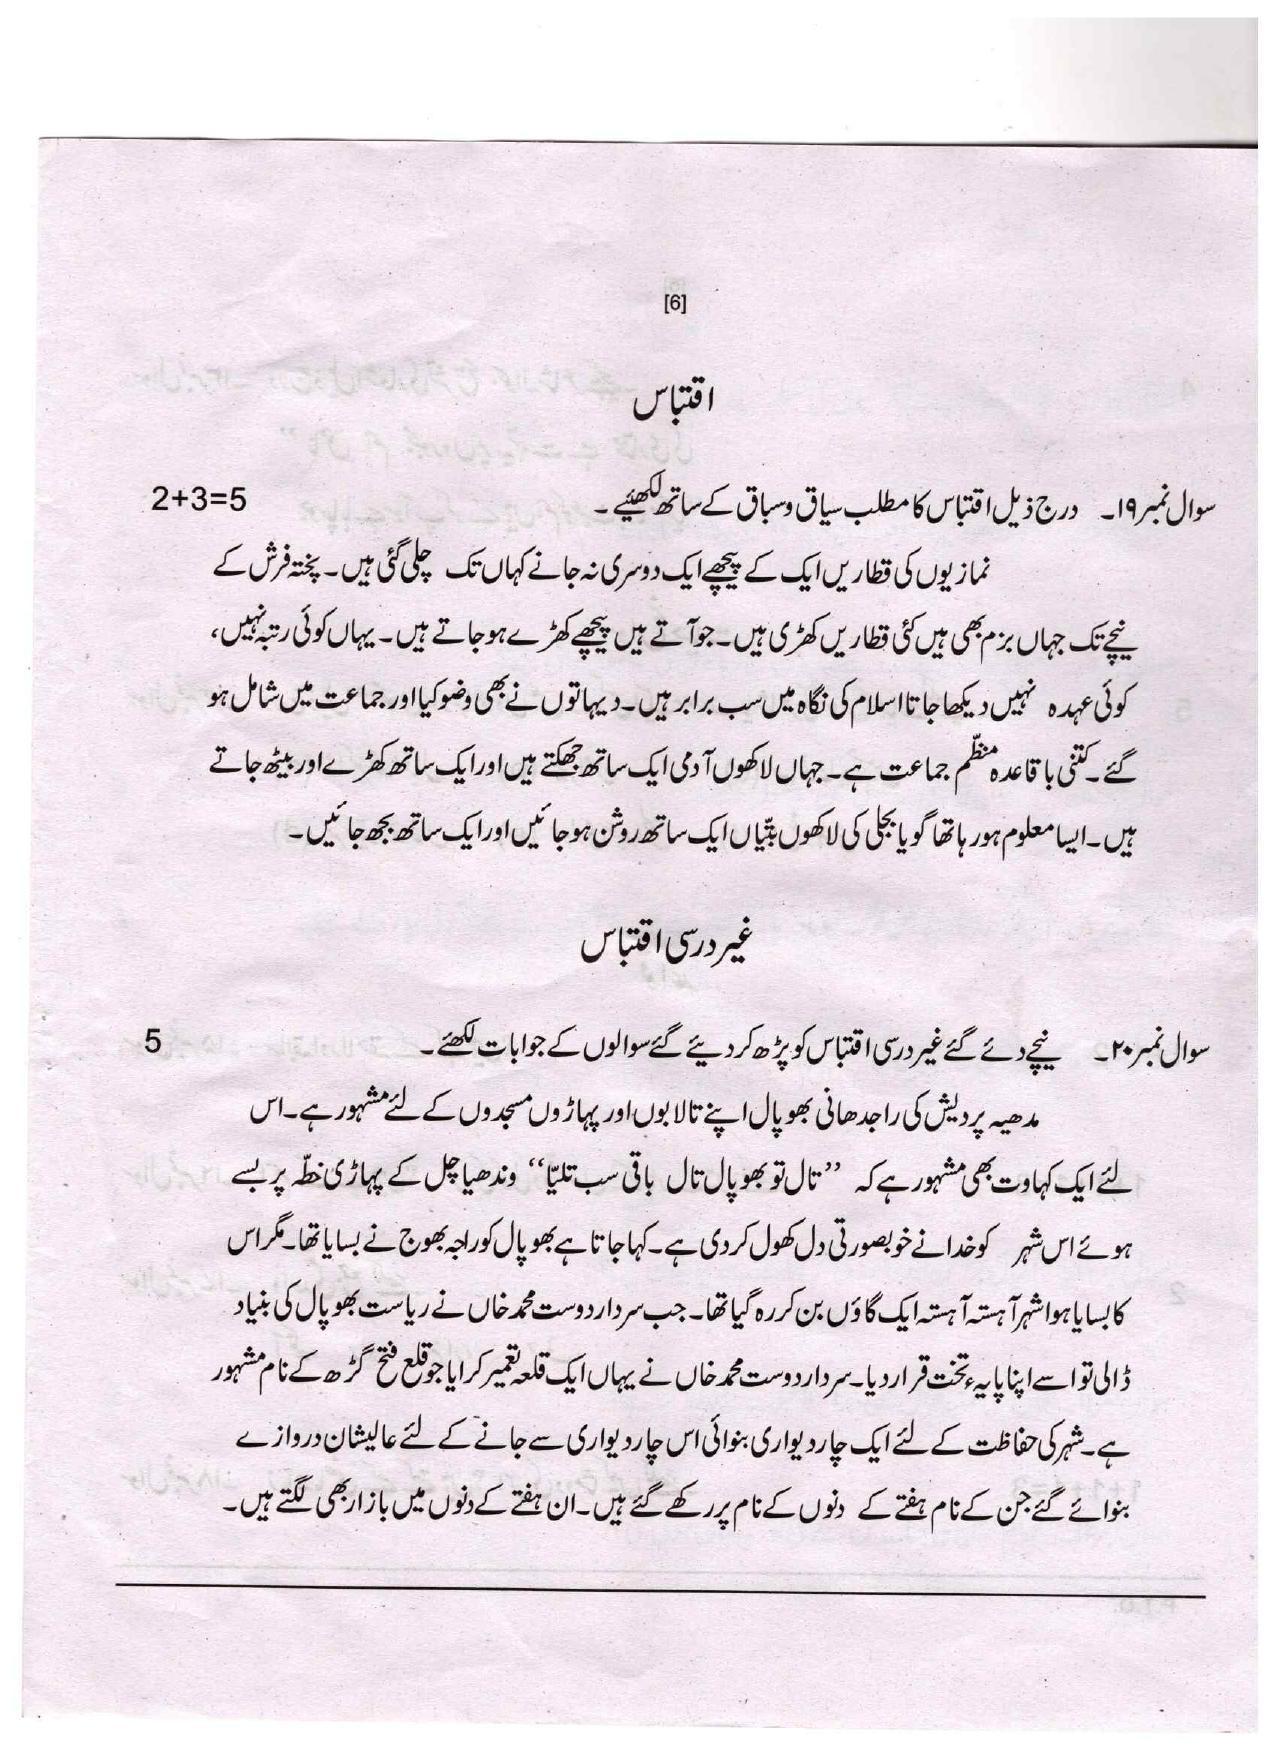 [6]
اقتباس
سوال نمبر ۱۹۔ درج ذیل اقتباس کا مطلب سیاق و سباق کے ساتھ لکھئیے ۔ 2+3=5
نمازیوں کی قطاریں ایک کے پیچھے ایک دوسری نہ جانے کہاں تک چلی گئی ہیں۔ پختہ فرش کے
نیچے تک جہاں بزم بھی ہیں کئی قطاریں کھڑی ہیں۔ جو آتے ہیں پیچھے کھڑے ہو جاتے ہیں۔ یہاں کوئی رتبہ نہیں،
کوئی عہدہ نہیں دیکھا جاتا اسلام کی نگاہ میں سب برابر ہیں۔ دیہاتوں نے بھی وضو کیا اور جماعت میں شامل ہو
گئے۔ کتنی باقاعدہ منظّم جماعت ہے۔ جہاں لاکھوں آدمی ایک ساتھ جھکتے ہیں اور ایک ساتھ کھڑے اور بیٹھ جاتے
ہیں۔ ایسا معلوم ہو رہا تھا گویا بجلی کی لاکھوں بتّیاں ایک ساتھ روشن ہو جائیں اور ایک ساتھ بجھ جائیں۔
غیر درسی اقتباس
سوال نمبر ۲۰۔ نیچے دئے گئے غیر درسی اقتباس کو پڑھ کر دیئے گئے سوالوں کے جوابات لکھئے ۔ 5
مدھیہ پردیش کی راجدھانی بھوپال اپنے تالابوں اور پہاڑوں مسجدوں کے لئے مشہور ہے۔ اس
لئے ایک کہاوت بھی مشہور ہے کہ ’’تال تو بھوپال تال باقی سب تلیّا‘‘ وندھیاچل کے پہاڑی خطّہ پر بسے
ہوئے اس شہر کو خدا نے خوبصورتی دل کھول کر دی ہے۔ کہا جاتا ہے بھوپال کو راجہ بھوج نے بسایا تھا۔ مگر اس
کا بسایا ہوا شہر آہستہ آہستہ ایک گاؤں بن کر رہ گیا تھا۔ جب سردار دوست محمد خاں نے ریاست بھوپال کی بنیاد
ڈالی تو اسے اپنا پایہء تخت قرار دیا۔ سردار دوست محمد خاں نے یہاں ایک قلعہ تعمیر کرایا جو قلع فتح گڑھ کے نام مشہور
ہے۔ شہر کی حفاظت کے لئے ایک چار دیواری بنوائی اس چار دیواری سے جانے کے لئے عالیشان دروازے
بنوائے گئے جن کے نام ہفتے کے دنوں کے نام پر رکھے گئے ہیں۔ ان ہفتے کے دنوں میں بازار بھی لگتے ہیں۔